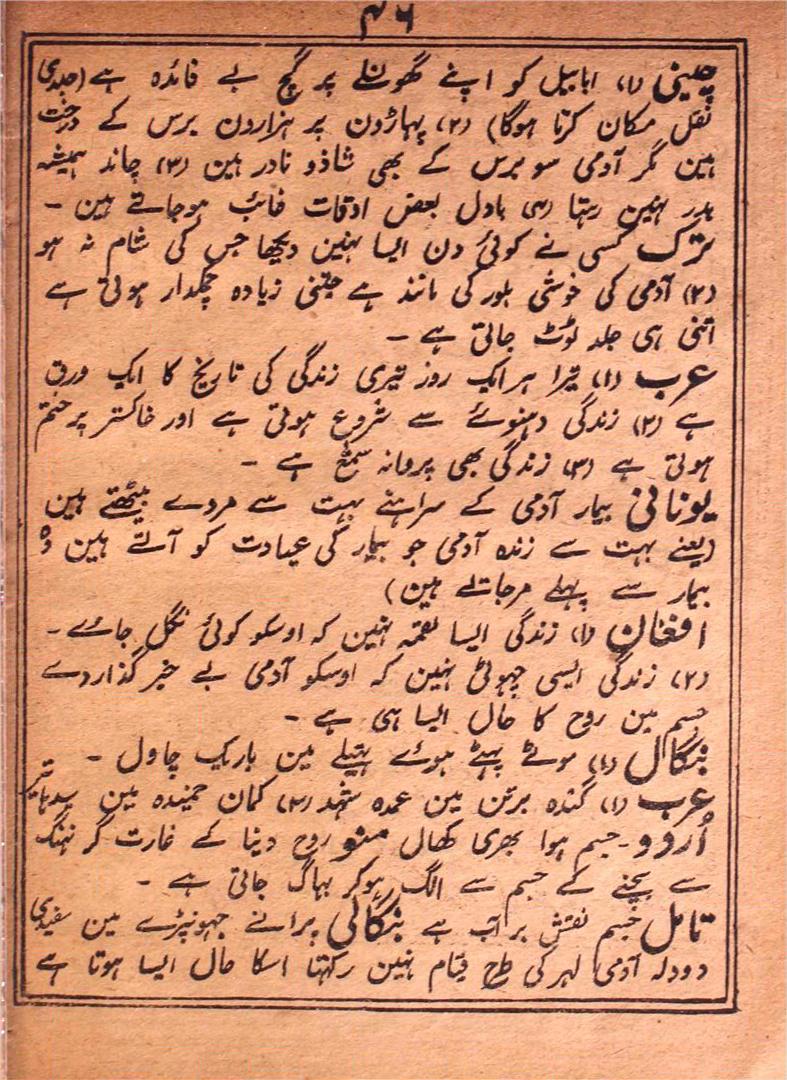 ۴۶
چینی (۱) ابابیل کو اپنے گھونسلے پر گچ بے فائدہ ہے (جلدی
نقل مکان کرنا ہوگا) (۲) پہاڑون پر ہزارون برس کے درخت
ہین مگر آدمی سو برس کے بھی شاذو نادر ہین (۳) چاند ہمیشہ
بدر نہین رہتا (۴) بادل بعض اوقات غائب ہوجاتے ہین ۔
ترک کسی نے کوئی دن ایسا نہین دیکھا جس کی شام نہ ہو
(۲) آدمی کی خوشی بلور کی مانند ہے جتنی زیادہ چمکدار ہوتی ہے
اتنی ہی جلد ٹوٹ جاتی ہے ۔
عرب (۱) تیرا ہر ایک روز تیری زندگی کی تاریخ کا ایک ورق
ہے (۲) زندگی دہنوئے سے شروع ہوتی ہے اور خاکستر پر ختم
ہوتی ہے (۳) زندگی بھی پروانہ شمع ہے ۔
یونانی بیمار آدمی کے سراہنے بہت سے مردے بیٹھتے ہین
(یعنے بہت سے زندہ آدمی جو بیمار کی عیادت کو آتے ہین وہ
بیمار سے پہلے مرجاتے ہین)
افغان (۱) زندگی ایسا لقمہ نہین کہ اوسکو کوئی نگل جائے ۔
(۲) زندگی ایسی چہوٹی نہین کہ اوسکو آدمی بے خبر گذار دے
جسم مین روح کا حال ایسا ہی ہے ۔
بنگال (۱) موٹے پہٹے ہوئے تہیلے مین باریک چاول ۔
عرب (۱) گندہ برتن مین عمدہ شہد (۲) کمان خمیدہ مین سیدہا تیر
اُردو ۔ جسم ہوا بھری کھال منو روح دینا کے غارت گر نہنگ
سے بچنے کے جسم سے الگ ہوکر بہاگ جاتی ہے ۔
تامل جسم نقش بر آب ہے بنگالی پرانے جہونپڑے مین سفیدی
دودلہ آدمی لہر کی طرح قیام نہین رکہتا اسکا حال ایسا ہوتا ہے